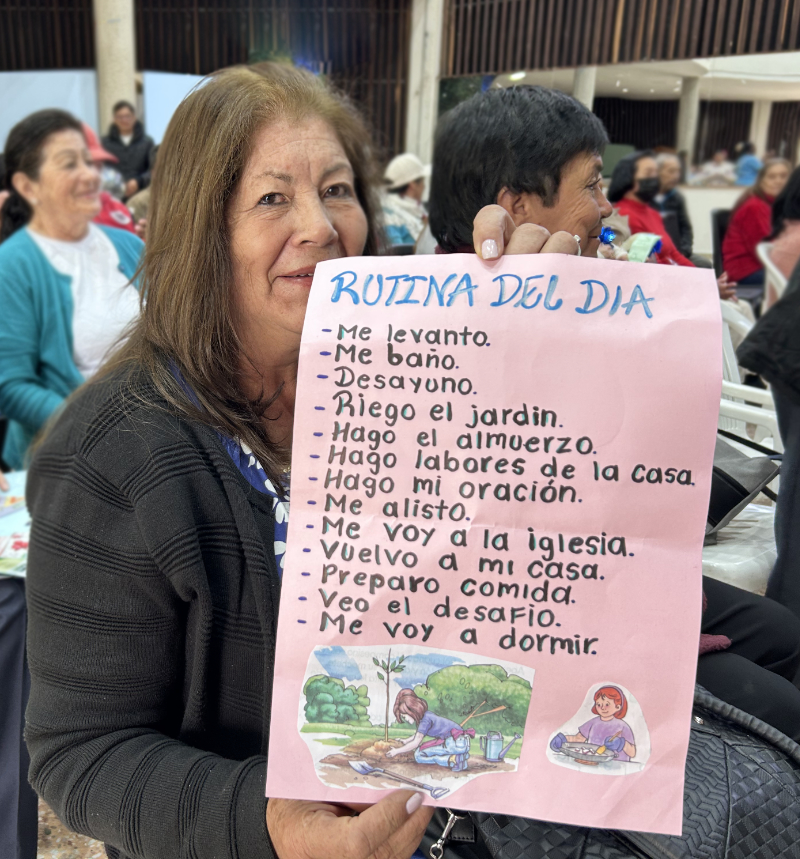 RUTINA DEL DIA
- Me levanto.
- Me baño.
- Desayuno.
- Riego el jardin.
- Hago el almuerzo.
- Hago labores de la casa.
- Hago mi oración.
- Me alisto.
- Me voy a la iglesia.
- Vuelvo a mi casa.
- Preparo comida.
- Veo el desafio.
- Me voy a dormir.